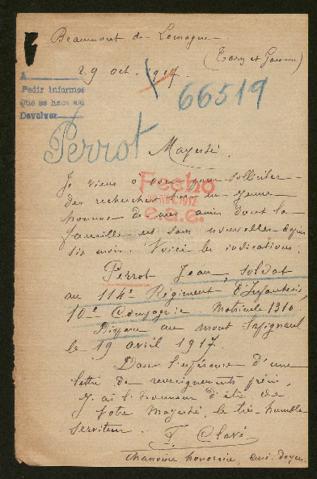 Beaumont de Lomagne
(Tarn et Garonne)
29 oct. 1917
A
Pedir informes
Que se hace en
Devolver
66519
Perrot
Majesté,
Je viens vous solliter
des recherches d'un jeune
homme de mes amis dont la
famille est sans nouvelles depuis
six mois. Voici les indications.
Fecho
1917
Perrot Jean, soldat
au 114e Régiment d'Infanterie,
10e Compagnie Matricule 1310
Disparu au mont
le 19 avril 1917.
Dans l'espérance d'une
lettre de renseignements précis,
j'ai l'honneur d'être de
Votre Majesté, le très humble
serviteur.
F. Clavé
chanoine honoraire, curé-doyen